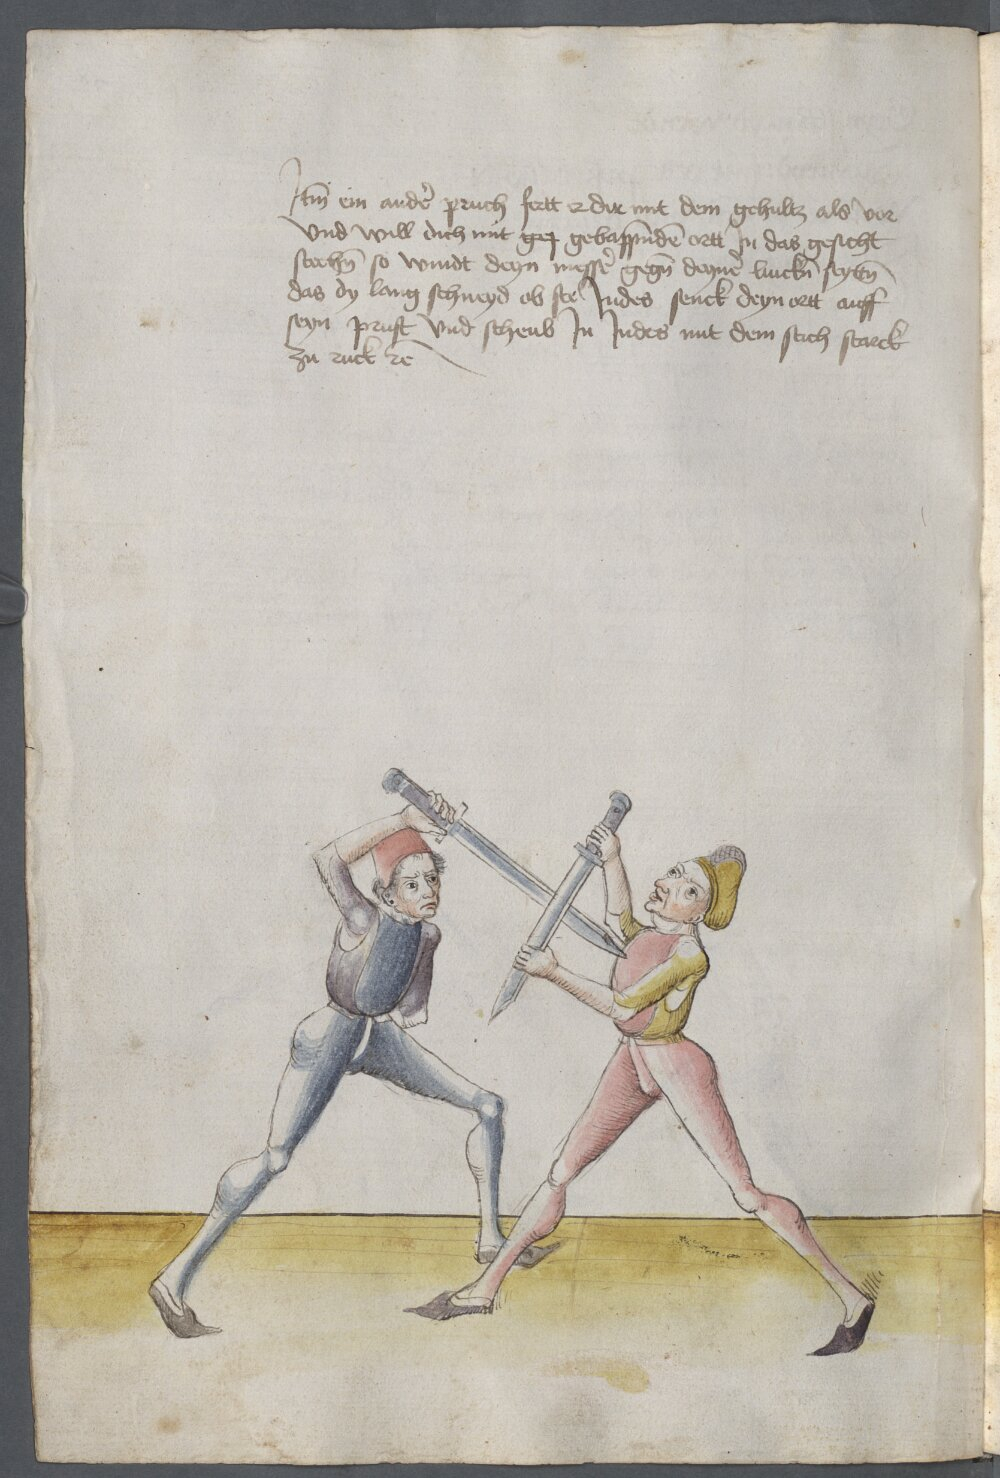 Itm̄ ein ander̉ pruch fertt er dir mit dem gehultz als vor
Und will dich mit gebappendē ortt In das gesicht
stechn̄ so windt deyn messer̉ gegn̄ deyner̉ linckn̄ seytn̄
das dy lang schneyd ob ste Indes senck deyn ortt auff
seyn prust Und scheub In Indes mit dem stich starck
zu ruck